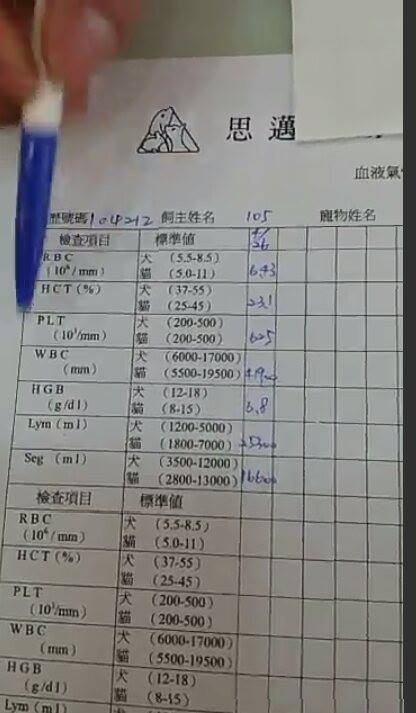 思邁
血液氣
歷號碼 104212 飼主姓名 105 寵物姓名
檢查項目 標準值 4/26
RBC 犬 (5.5-8.5)
(10⁶/mm) 貓 (5.0-11) 6.43
HCT(%) 犬 (37-55)
貓 (25-45) 23.1
PLT 犬 (200-500)
(10³/mm) 貓 (200-500) 625
WBC 犬 (6000-17000)
(mm) 貓 (5500-19500)
HGB 犬 (12-18)
(g/dl) 貓 (8-15) 6.8
Lym (ml) 犬 (1200-5000)
貓 (1800-7000) 25300
Seg (ml) 犬 (3500-12000)
貓 (2800-13000) 16600
檢查項目 標準值
RBC 犬 (5.5-8.5)
(10⁶/mm) 貓 (5.0-11)
HCT(%) 犬 (37-55)
貓 (25-45)
PLT 犬 (200-500)
(10³/mm) 貓 (200-500)
WBC 犬 (6000-17000)
(mm) 貓 (5500-19500)
HGB 犬 (12-18)
(g/dl) 貓 (8-15)
Lym (ml) 犬 (1200-5000)